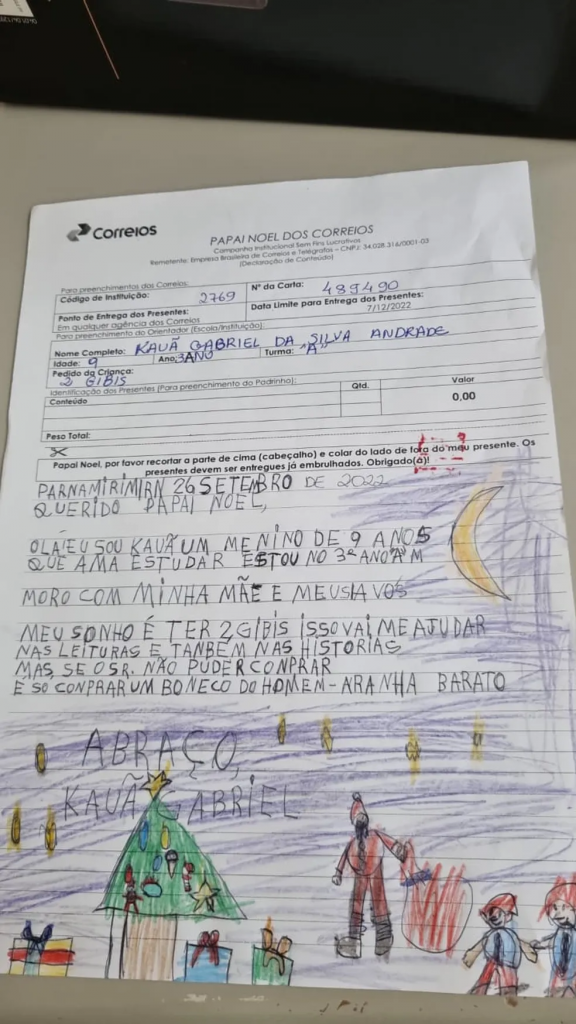 Correios
PAPAI NOEL DOS CORREIOS
Campanha Institucional Sem Fins Lucrativos
Remetente: Empresa Brasileira de Correios e Telégrafos – CNPJ: 34.028.316/0001-03
(Declaração de Conteúdo)
Para preenchimentos dos Correios:
Código de Instituição: 2769
Nº da Carta: 489490
Ponto de Entrega dos Presentes:
Em qualquer agência dos Correios
Data Limite para Entrega dos Presentes:
7/12/2022
Para preenchimento do Orientador (Escola/Instituição):
Nome Completo: KAUÃ GABRIEL DA SILVA ANDRADE
Idade: 9 Ano: 3ANO Turma: "A"
Pedido da Criança:
2 GIBIS
Identificação dos Presentes (Para preenchimento do Padrinho):
Conteúdo Qtd. Valor
0,00
Peso Total:
Papai Noel, por favor recortar a parte de cima (cabeçalho) e colar do lado de fora do meu presente. Os
presentes devem ser entregues já embrulhados. Obrigado(a)!
PARNAMIRIM/RN 26 SETEMBRO DE 2022
QUERIDO PAPAI NOEL,
OLÁ! EU SOU KAUÃ UM MENINO DE 9 ANOS
QUE AMA ESTUDAR ESTOU NO 3º ANO "A" M
MORO COM MINHA MÃE E MEUSIAVOS
MEU SONHO É TER 2 GIBIS ISSO VAI ME AJUDAR
NAS LEITURAS E TANBÉM NAS HISTORIAS
MAS, SE O SR. NÃO PUDER CONPRAR
É SO CONPRAR UM BONECO DO HOMEN-ARANHA BARATO
ABRAÇO,
KAUÃ GABRIEL